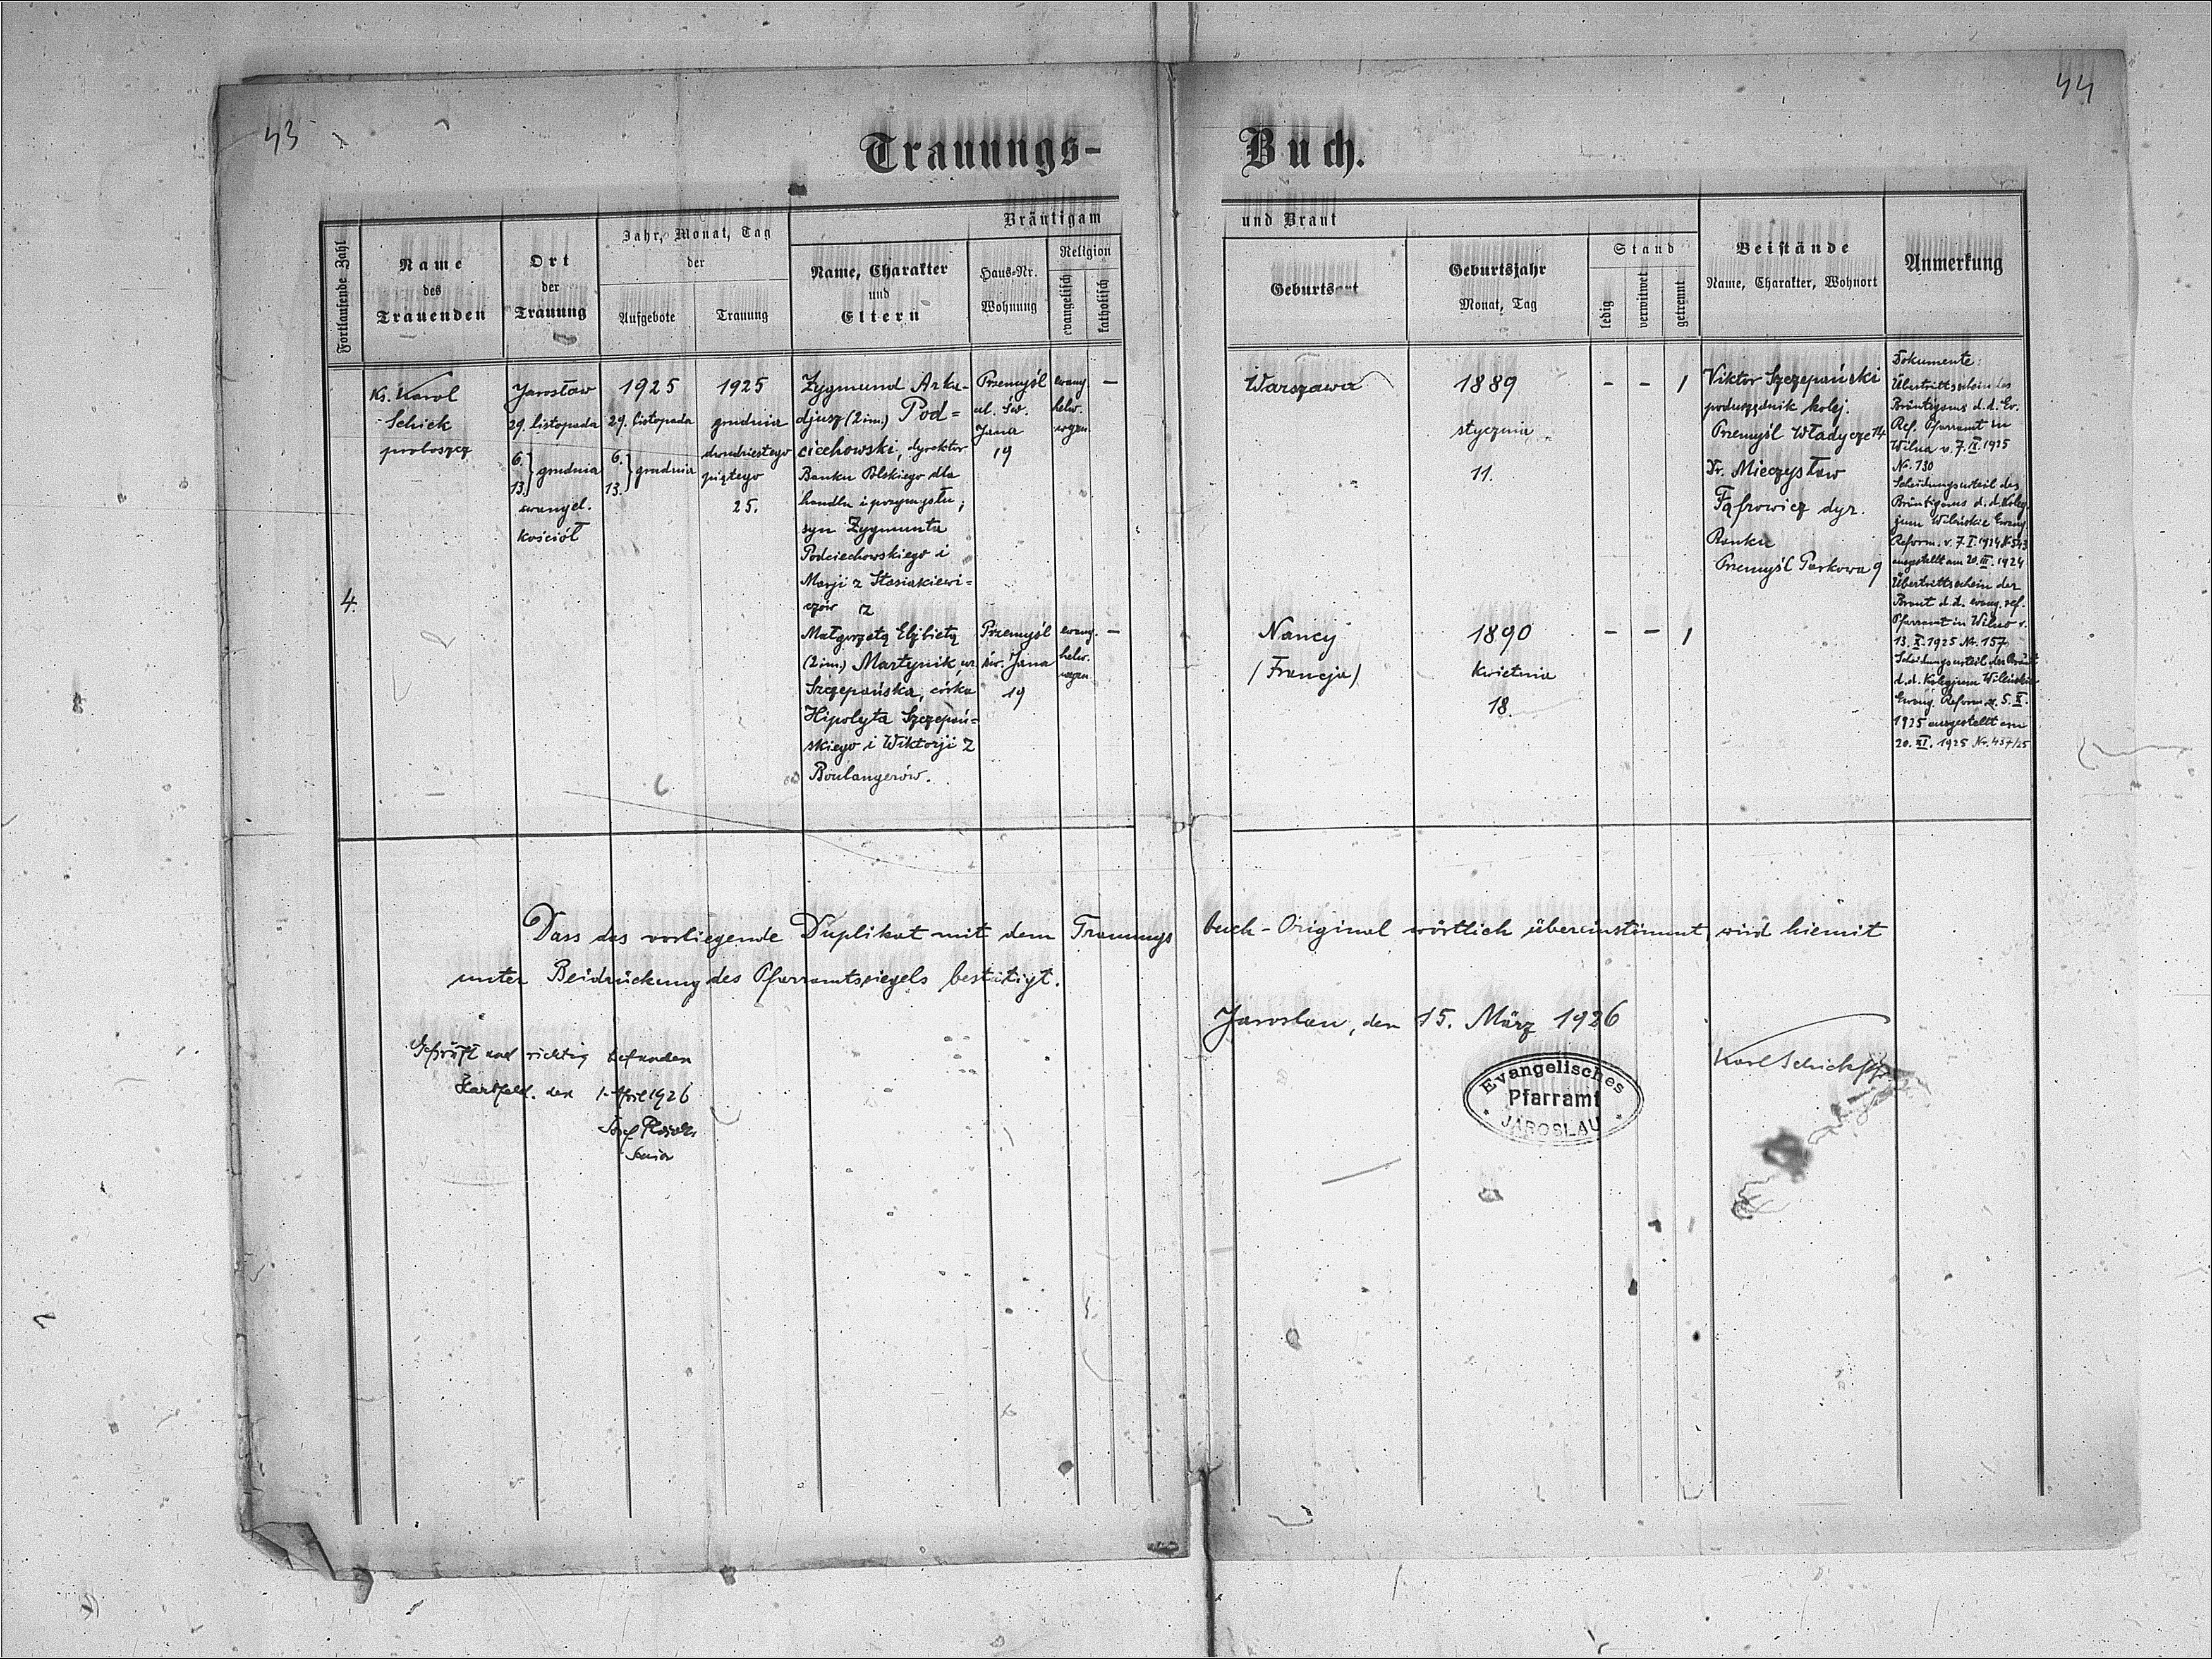 43
44
Trauungs-Buch.
Fortlaufende Zahl
Name
des
Trauenden
Ort
der
Trauung
Jahr, Monat, Tag
der
Aufgebote
Trauung
Bräutigam
und Braut
Name, Charakter
und
Eltern
Haus-Nr.
Wohnung
Religion
evangelisch
katholisch
Geburtsort
Geburtsjahr
Monat, Tag
Stand
ledig
verwitwet
getrennt
Beistände
Name, Charakter, Wohnort
Anmerkung
4.
Ks. Karol
Schick
proboszcz
Jarosław
29. listopada
6.
13. } grudnia
ewangel.
kościół
1925
29. listopada
6.
13. } grudnia
1925
grudnia
dwudziestego
piątego
25.
Zygmund Arka-
djusz (2 im.) Pod=
ciechowski, dyrektor
Banku Polskiego dla
handlu i przymysłu;
syn Zygmunta
Podciechowskiego i
Marji z Stasiakiewi=
czów z
Małgorzetą Elżbietą
(2 im.) Martynik, ur.
Szczepańska, córka
Hipolyta Szczepań=
skiego i Wiktorji z
Boulangerów.
Przemyśl
ul. Św.
Jana
19
Przemyśl
św. Jana
19
ewang.
helw.
wyzn.
—
ewang.
helw.
wyzn.
—
Warszawa
Nancy
(Francja)
1889
stycznia
11.
1890
kwietnia
18.
- - 1
- - 1
Viktor Szczepański
podurzędnik kolej.
Przemyśl Władycze 14
Dr. Mieczysław
Fąfrowicz dyr.
Banku
Przemyśl Parkowa 9
Dokumente:
Übertrittsschein des
Bräutigams d. d. Ev.
Ref. Pfarramt in
Wilna v. 7. IX. 1925
Nr. 130
Scheidungsurteil des
Bräutigams d. d. Koleg
jum Wileńskie Ewang.
Reform. v. 7. I. 1924
ausgestellt am 20. III. 1924
Übertrittsschein der
Braut d. d. ewang. ref.
Pfarramt in Wilno v.
13. X. 1925 Nr. 157.
Scheidungsurteil der Braut
d. d. Kolegjum Wileńskie
Ewang. Reform. v. 5. X.
1925 ausgestellt am
20. XI. 1925 Nr. 437/25
Dass das vorliegende Duplikat mit dem Trauungsbuch-Original wörtlich übereinstimmt, wird hiemit
unter Beidrückung des Pfarramtssiegels bestätigt.
Jaroslau, den 15. März 1926
Karl Schick
Evangelisches
Pfarramt
JAROSLAU
Geprüft und richtig befunden
Hartfeld, den 1. April 1926
Josef
Senior